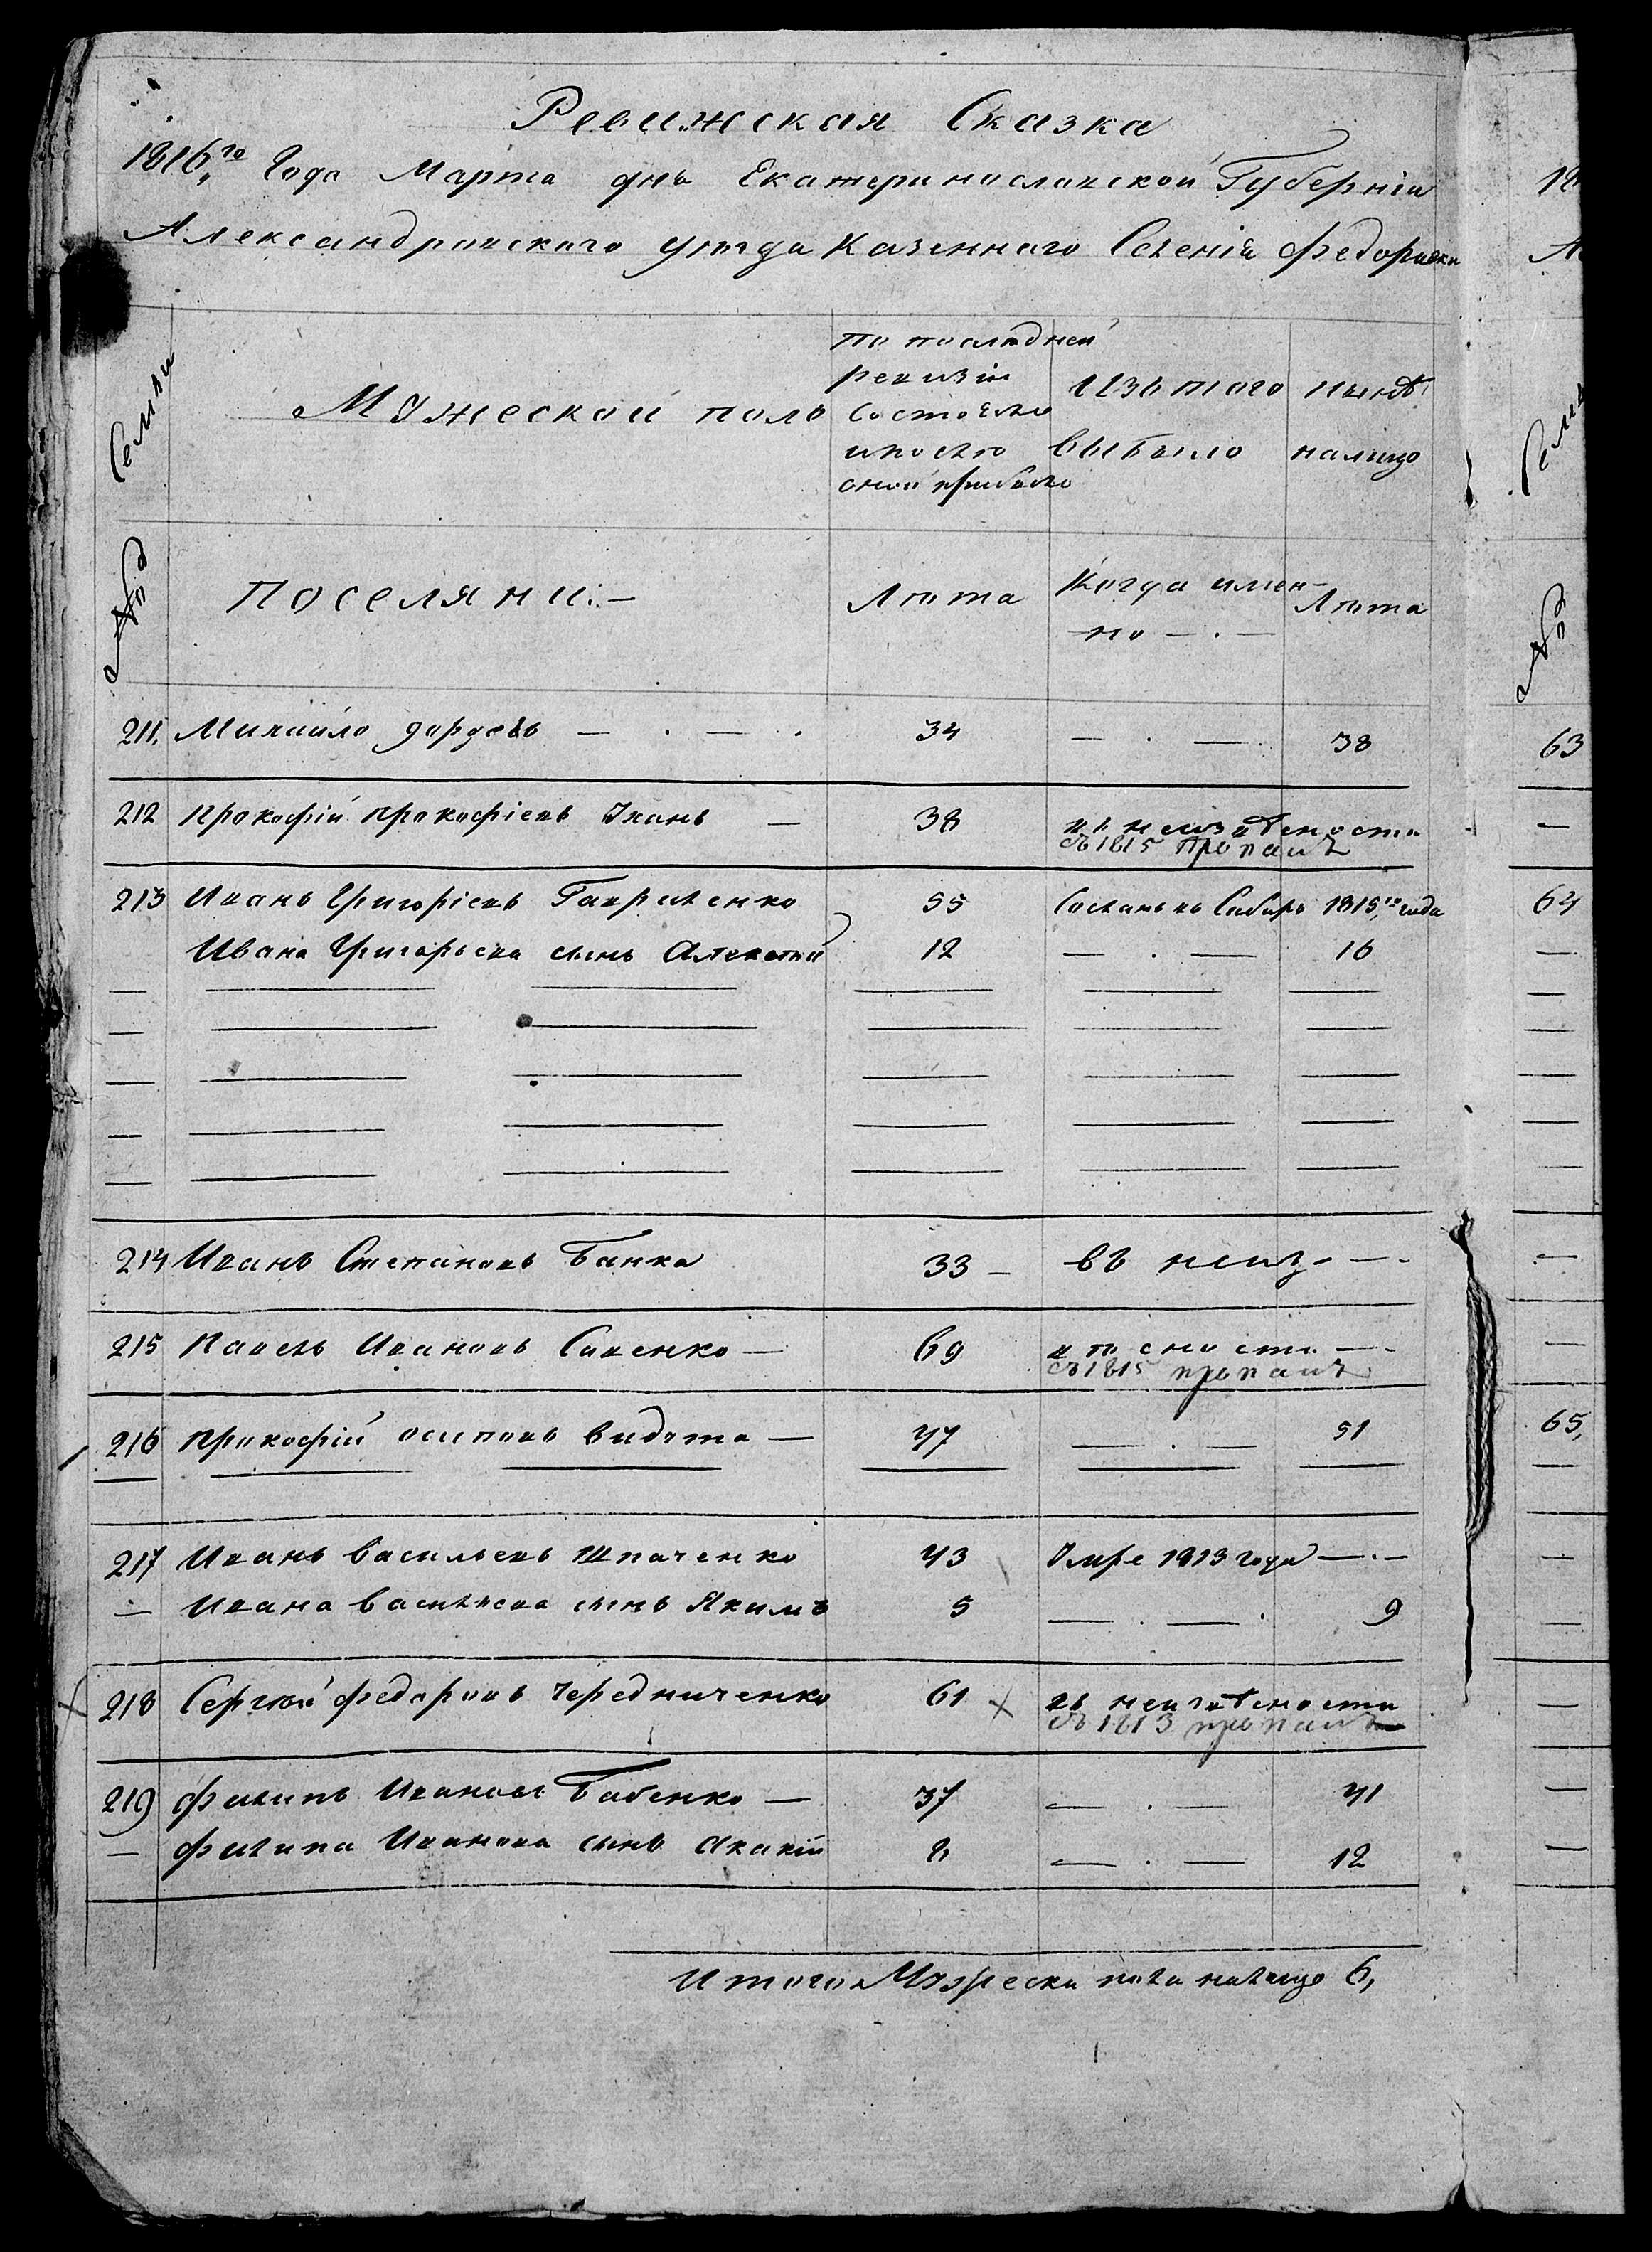 Ревижская Сказка
1816го Года Марта дня Екатеринославской Губерніи
Александровского уѣзда Казенного Селенія Федоровки
Семьи
Мужеской полъ
По последней
ревизіи
состояло
и после
оной прибыло
Изъ того
выбыло
ныне
налицо
№
Поселяни:—
Лѣта
Когда имен-
но — . —
Лѣта
211. Михайло — . — . 34 — . — . 38
212 Прокофій Прокофіевъ — 38 въ неизвѣсности
съ 1815 пропалъ
213 Иванъ Григорієвъ Гавриленко 55 Сосланъ въ Сибирь 1815го года
Ивана Григорьева сынъ Алексѣй 12 — . — 16
214 Иванъ Степановъ Банка 33 — въ неиз- — -
215 Павелъ Ивановъ Савенко — 69 вѣсности — -
съ 1815 пропалъ
216 Прокофій Осиповъ Видюта — 47 — . — 51
217 Иванъ Васильевъ Шпаченко 43 Умре 1813 года — . —
— Ивана Васильева сынъ Якимъ 5 — . — . 9
218 Сергѣй Федоровъ Чередниченко 61 × въ неизвѣсности
съ 1813 пропалъ
219 Филипъ Ивановъ Бабенко — 37 — . — 41
— Филипа Иванова сынъ Акакій 8 — . — 12
Итого Мужеска пола налицо 6,
63
64
65,